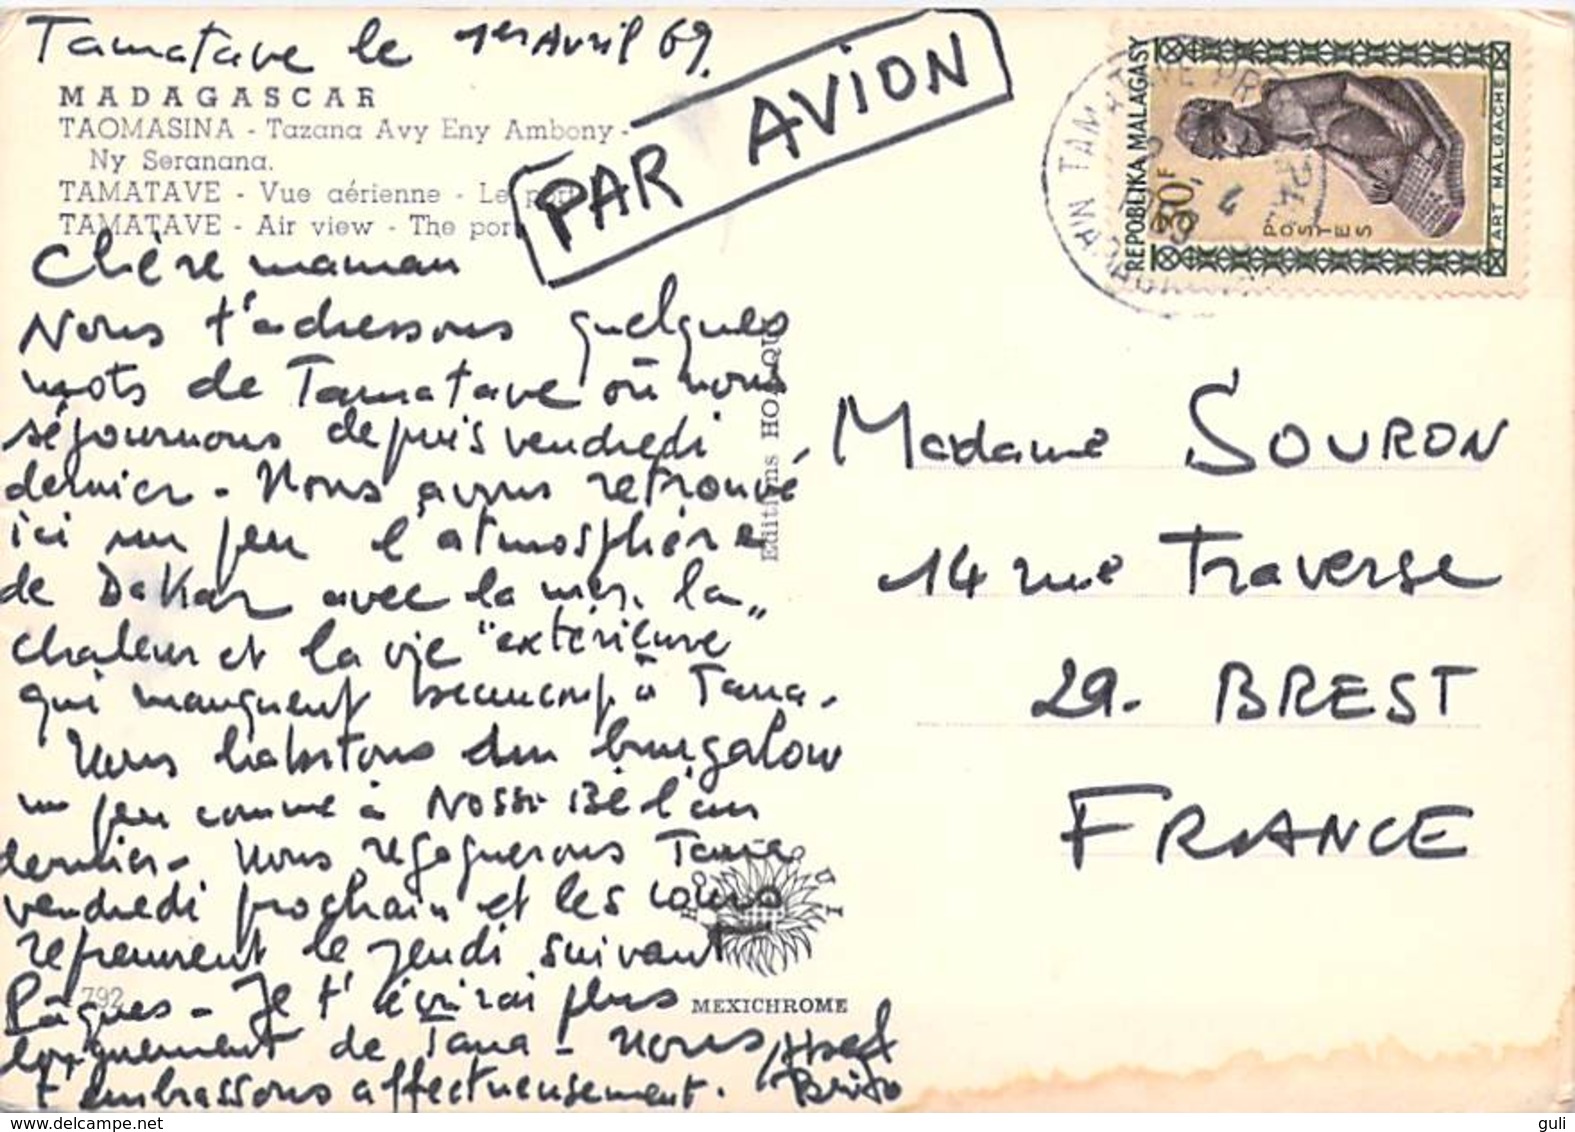 Tamatave le 1er Avril 69.
MADAGASCAR
TAOMASINA - Tazana Avy Eny Ambony -
Ny Seranana.
TAMATAVE - Vue aérienne - Le port
TAMATAVE - Air view - The port
PAR AVION
REPOBLIKA MALAGASY
30F
POSTES
ART MALGACHE
Chère maman
Nous t'adressons quelques
mots de Tamatave où nous
séjournons depuis vendredi
dernier - Nous avons retrouvé
ici un peu l'atmosphère
de Dakar avec la mer, la
chaleur et la vie "extérieure"
qui manquent beaucoup à Tana.
Nous habitons un bungalow
un peu comme à Nossi-Bé l'an
dernier - Nous regagnerons Tana
vendredi prochain et les cours
reprennent le jeudi suivant
Pâques - Je t'écrirai plus
longuement de Tana - Nous
t'embrassons affectueusement.
Madame SOURON
14 rue Traverse
29. BREST
FRANCE
Editions HOA-QUI
HOA QUI
792
MEXICHROME
guli